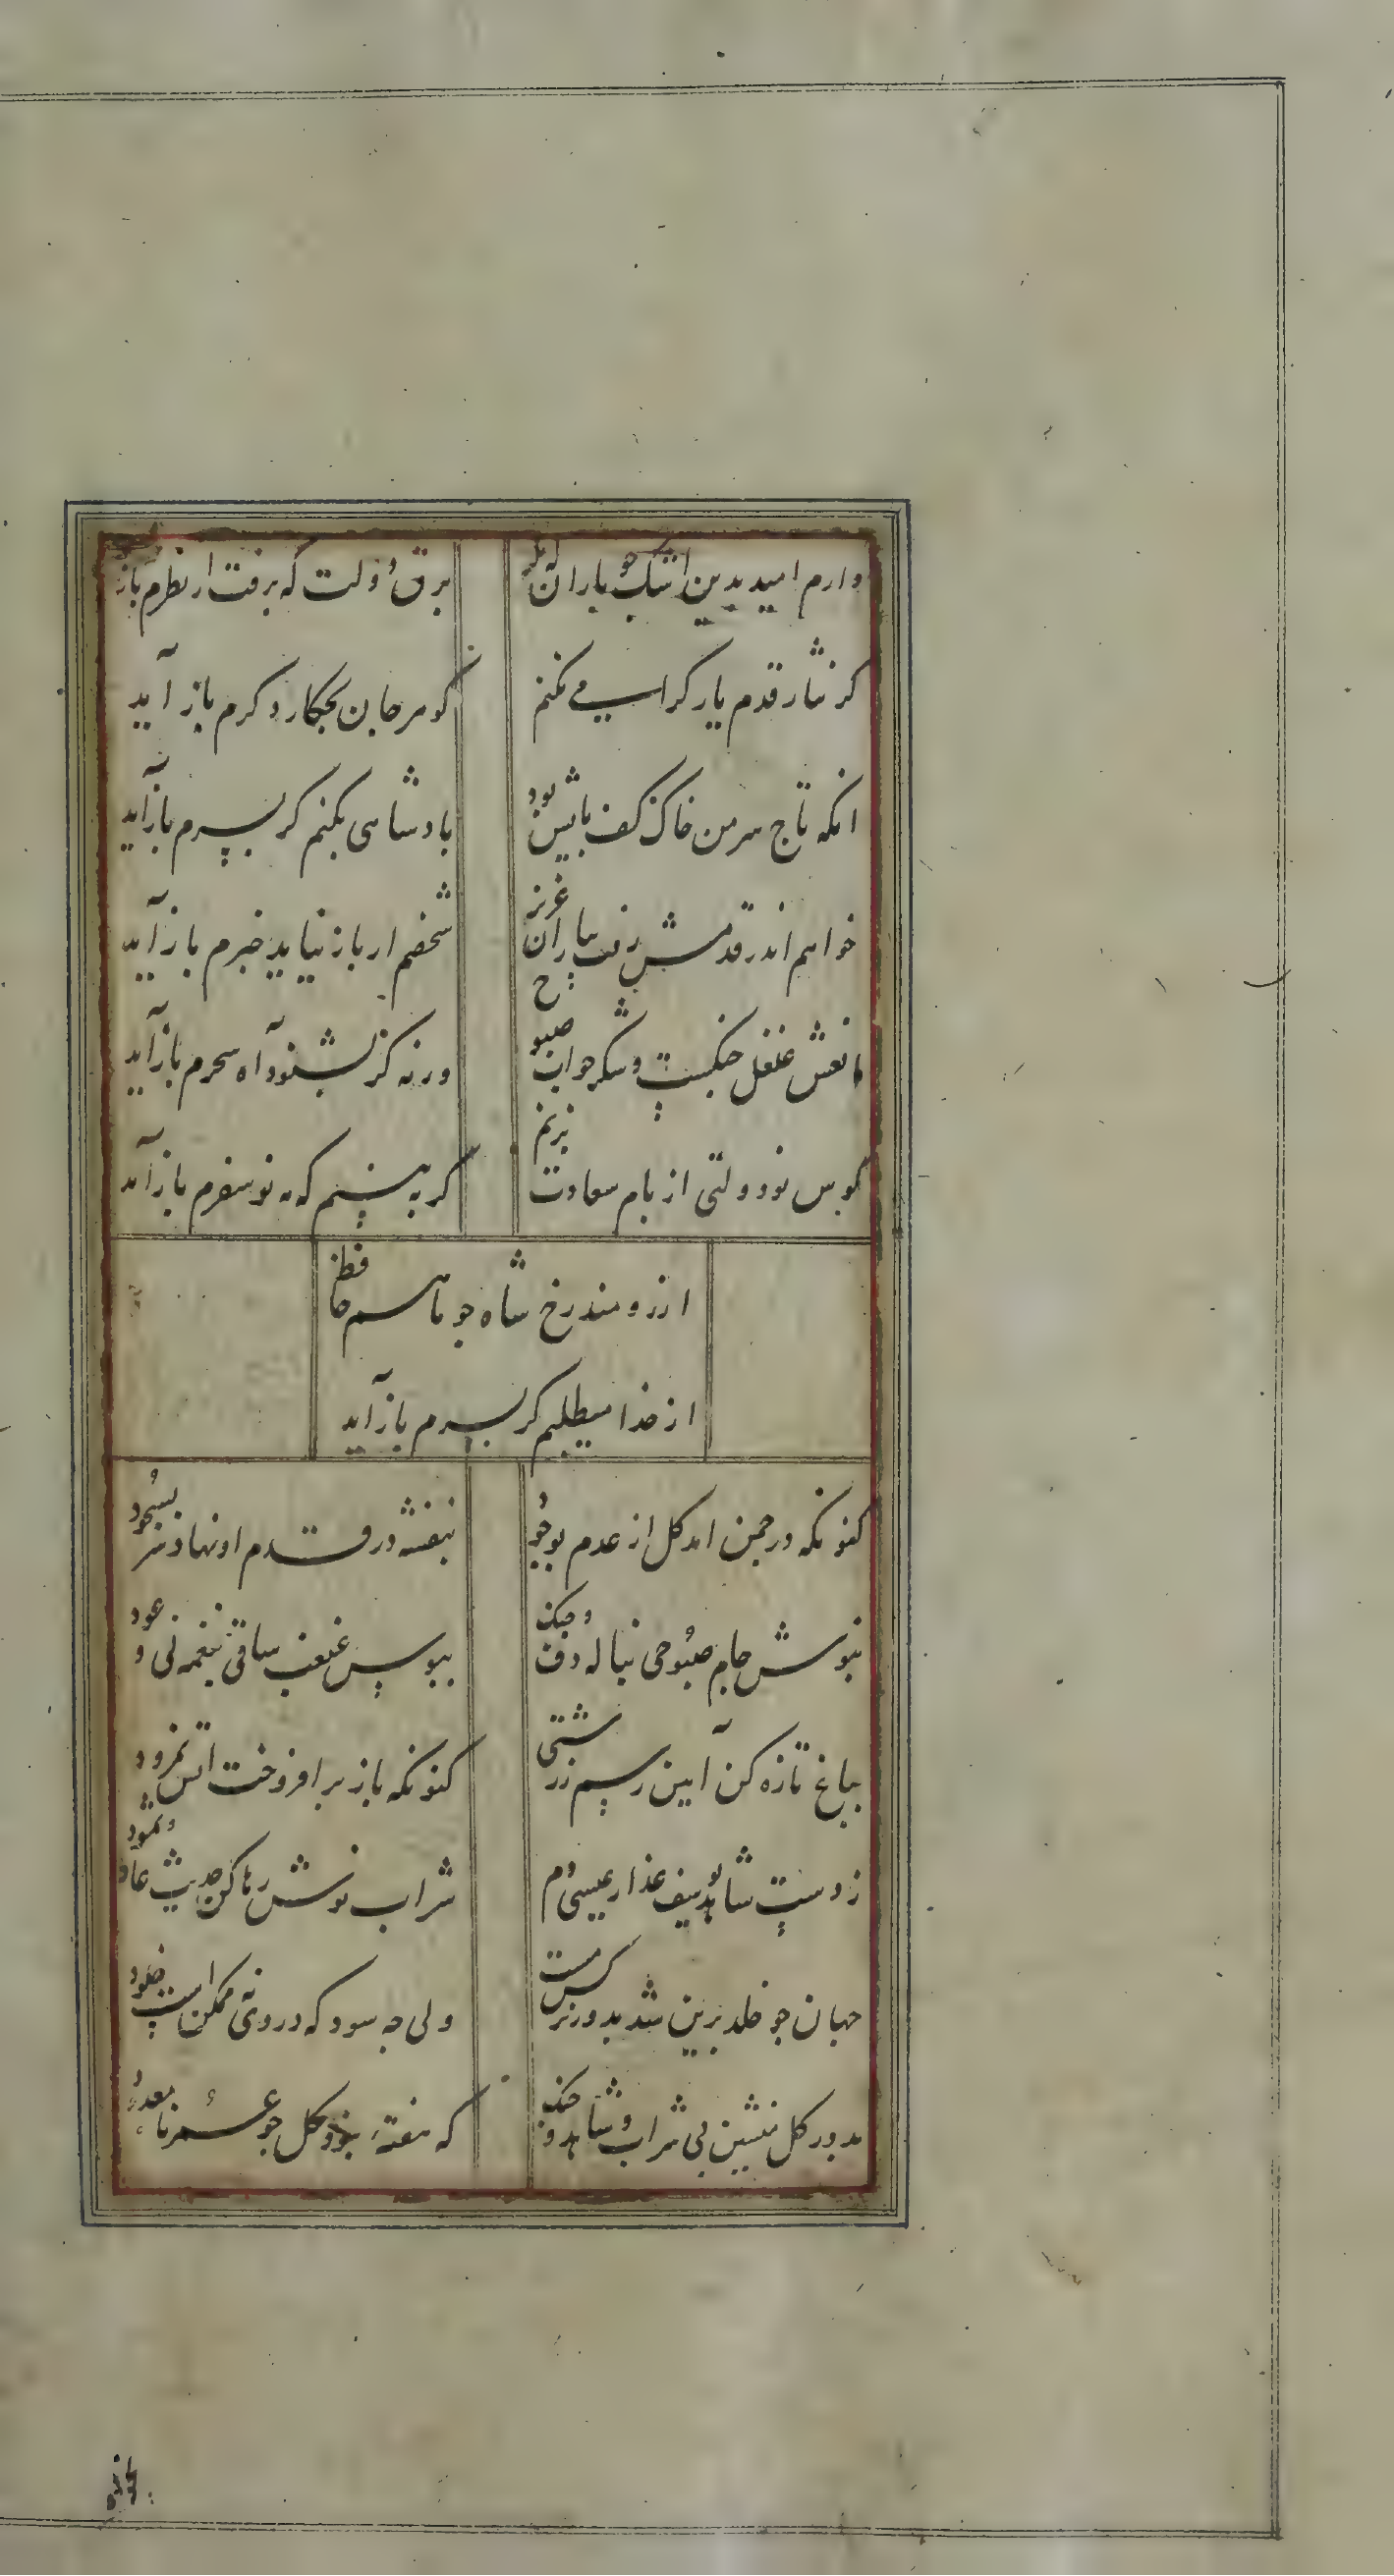 دارم امید بدین اشک چو باران که مگر
برق دولت که برفت از نظرم باز
گر نثار قدم یار گرامی نکنم
گوهر جان بچکار دگرم باز آید
آنکه تاج سر من خاک کف پایش بود
پادشاهی بکنم گر بسرم بازآید
خواهم اندر قدمش رفت بیاران عزیز
شخصم ار باز نیاید خبرم باز آید
مانعش غلغل چنگست و شکر خواب صبوح
ورنه گر بشنود آه سحرم بازآید
کوس نو دولتی از بام سعادت بزنم
گر به بینم که مه نو سفرم بازآید
ارزومند رخ شاه چو ماهم حافظ
از خدا میطلبم کر بسرم بازآید
کنونکه در چمن امد کل از عدم بوجود
بنفشه در قدم او نهاد سر بسجود
بنوش جام صبوحی بناله دف و چنک
ببوس غبغب ساقی بنغمه نی و عود
بباغ تازه کن آیین رسم زردشتی
کنونکه باز برافروخت اتش نمرود
ز دست شاهد سیف عذار عیسی دم
شراب نوش رها کن حدیث عاد و ثمود
جهان چو خلد برین شد بدور نرکس مست
ولی چه سود که در وی نه ممکن است خلود
بدور کل منشین بی شراب و شاهد و چنک
که هفتهٔ بود کل چو عمر نامعدود